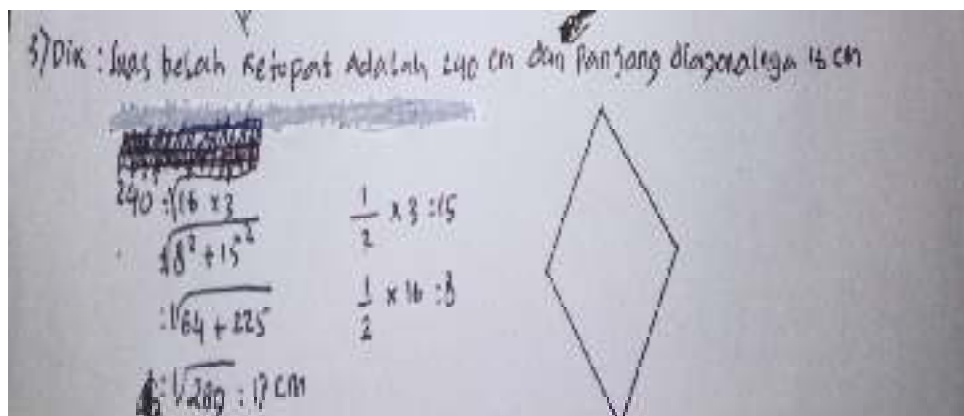 5) Dik : luas belah ketupat Adalah 240 cm dan Panjang diagonalnya 16 cm
240 : √16 x 3
√8² + 15²
: √64 + 225
: √289 : 17 cm
1/2 x 3 : 15
1/2 x 16 : 8